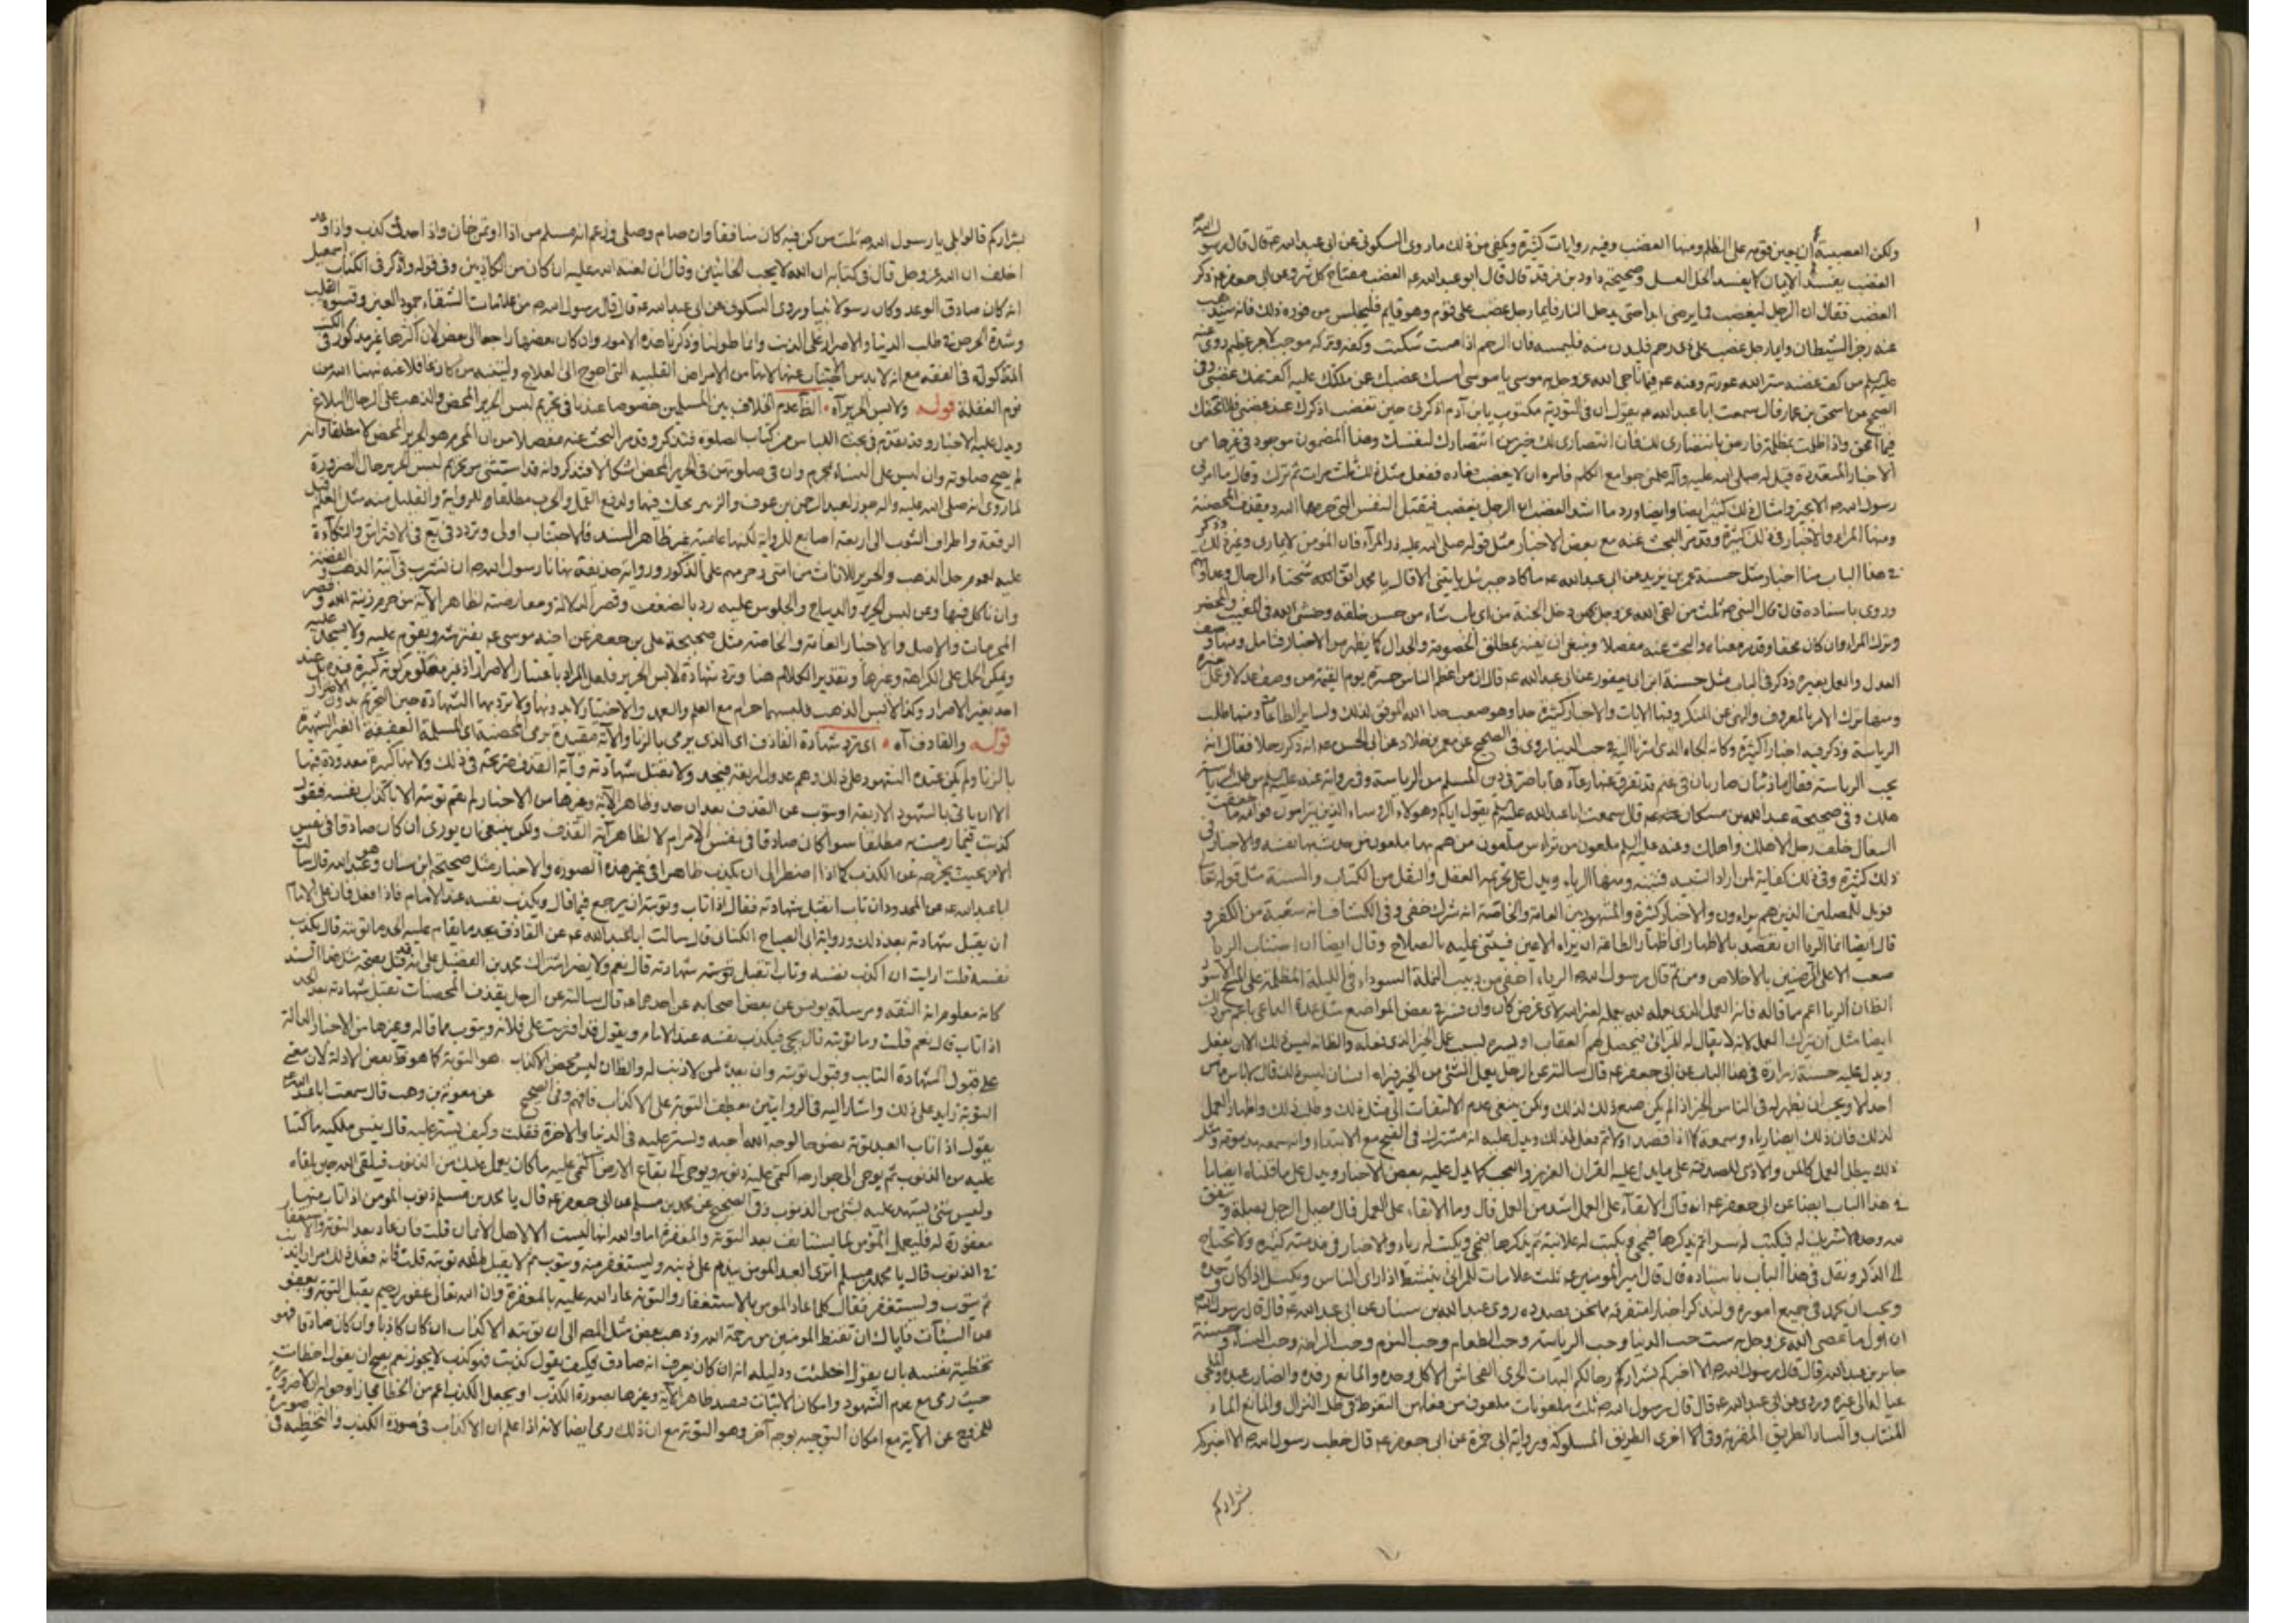 ولكن العصبية أن يعين قومه على الظلم ومنها الغضب وفيه روايات كثيرة ويكفي من ذلك ما روى السكوني عن ابى عبد الله عه قال قال رسول الله ص
الغضب يفسد الايمان كما يفسد الخل العسل وصحيحة داود بن فرقد قال قال ابو عبد الله عه الغضب مفتاح كل شر وعن ابى جعفر عه ذكر
الغضب فقال ان الرجل ليغضب فما يرضى ابدا حتى يدخل النار فايما رجل غضب على قوم وهو قايم فليجلس من فوره ذلك فانه سيذهب
عنه رجز الشيطان وايما رجل غضب على ذى رحم فليدن منه فليمسه فان الرحم اذا مست سكنت وكفه وتركه موجب لاجر عظيم روى عنه
عليه السلم من كف غضبه ستر الله عورته وعنه عه فيما ناجى الله عز وجل به موسى يا موسى امسك غضبك عمن ملكتك عليه اكف عنك غضبى وفى
الصحيح عن اسحق بن عمار قال سمعت ابا عبد الله عه يقول ان فى التورية مكتوب يابن آدم اذكرنى حين تغضب اذكرك عند غضبى فلا امحقك
فيما امحق واذا ظلمت بمظلمة فارض بانتصارى لك فان انتصارى لك خير من انتصارك لنفسك وهذا المضمون موجود فى غيرها من
الاخبار المتعددة قيل له صلى الله عليه وآله علمنى جوامع الكلم فامره ان لا يغضب فعاده ففعل مثل ذلك ثلث مرات ثم ترك وقال ما امرنى
رسول الله ص الا بخير وامثال ذلك كثير ايضا وايضا ورد ما اشد الغضب ان الرجل يغضب فيقتل النفس التى حرمها الله ويقذف المحصنة
ومنها المراء والاخبار فى ذلك كثيرة وقد مر البحث عنه مع بعض الاخبار مثل قوله صلى الله عليه ذروا المراء فان المؤمن لا يمارى وغير ذلك وذكر
فى هذا الباب منا اخبار مثل حسنة عمر بن يزيد عن ابى عبد الله عه ما كاد جبرئيل يأتينى الا قال يا محمد اتق شحناء الرجال وعداوتهم
وروى باسناده قال قال النبى ص ثلث من لقى الله عز وجل بهن دخل الجنة من اى باب شاء من حسن خلقه وخشى الله فى المغيب والمحضر
وترك المراء وان كان محقا وقد مر معناه والبحث عنه مفصلا وينبغى ان يفسر بمطلق الخصومة والجدال كما يظهر من الاخبار فتامل ومنها وصف
العدل والعمل بغيره وذكر فى الباب مثل حسنة ابن ابى يعفور عن ابى عبد الله عه قال ان من اعظم الناس حسرة يوم القيمة من وصف عدلا وعمل بغيره
ومنها ترك الامر بالمعروف والنهى عن المنكر وفيها الايات والاخبار كثيرة جدا وهو صعب جدا الله الموفق لذلك ولساير الطاعات ومنها طلب
الرياسة وذكر فيه اخبارا كثيرة وكانه الجاه الذى اشرنا اليه وحب الدنيا روى فى الصحيح عن معمر بن خلاد عن ابى الحسن عه انه ذكر رجلا فقال انه
يحب الرياسة فقال ما ذئبان ضاريان فى غنم قد تفرق عنها رعاؤها باضر فى دين المسلم من الرياسة وفى رواية عنه عليه السلم من طلب الرياسة
هلك وفى صحيحة عبد الله بن مسكان عنه عه قال سمعت ابا عبد الله عليه السلم يقول اياكم وهؤلاء الرؤساء الذين يتراسون فوالله ما خفقت
النعال خلف رجل الا هلك واهلك وعنه عليه السلم ملعون من تراس ملعون من هم بها ملعون من حدث بها نفسه والاخبار فى
ذلك كثيرة وفى ذلك كفاية لمن اراد التنبيه فتنبه ومنها الرياء ويدل على تحريمه العقل والنقل من الكتاب والسنة مثل قوله تعا
فويل للمصلين الذين هم يراءون والاخبار كثيرة والمشهور بين العامة والخاصة انه شرك خفى وفى الكشاف انه شعبة من الكفر و
قال ايضا انما الريا ان يقصد بالاظهار اى اظهار الطاعة ان يراه الاعين فيثنى عليه بالصلاح وقال ايضا ان اجتناب الريا
صعب الا على المرتضين بالاخلاص ومن ثم قال رسول الله ص الرياء اخفى من دبيب النملة السوداء فى الليلة المظلمة على المسح الاسود
الظاهر ان الريا اعم مما قاله فانه العمل الذى عمله لله يعمله لغير الله لاى غرض كان وان فسر فى بعض المواضع مثل عدة الداعى باعم من ذلك
ايضا مثل ان ترك العمل لانه لا يقال له المرائى فيحصل لهم العقاب
ويدل عليه حسنة زرارة فى هذا الباب عن ابى جعفر عه قال سالته عن الرجل يعمل الشئ من الخير فيراه انسان ليس ذلك قال لا باس ما من
احد الا ويحب ان يظهر له فى الناس الخير اذا لم يكن صنع ذلك لذلك ولكن ينبغى عدم الالتفات الى مثل ذلك وطلب ذلك واظهار العمل
لذلك فان ذلك ايضا رياء وسمعة
ذلك يبطل العمل كالمن والاذى للصدقة على ما يدل عليه القران العزيز والعجب كما يدل عليه بعض الاخبار ويدل على ما قلناه ايضا ما
فى هذا الباب ايضا عن ابى جعفر عه انه قال الابقاء على العمل اشد من العمل قال وما الابقاء على العمل قال يصل الرجل بصلة وينفق
لله وحده لا شريك له فيكتب له سرا ثم يذكرها فتمحى ويكتب له علانية ثم يذكرها فتمحى ويكتب له رياء والاخبار فى مذمته كثيرة ولا يحتاج
الى الذكر ونقل فى هذا الباب باسناده قال قال امير المؤمنين عه ثلث علامات للمرائى ينشط اذا راى الناس ويكسل اذا كان وحده
ويحب ان يحمد فى جميع اموره ولنذكر اخبارا متفرقة ما نحن بصدده روى عبد الله بن سنان عن ابى عبد الله عه قال قال رسول الله ص
ان اول ما عصى الله عز وجل به ست حب الدنيا وحب الرياسة وحب الطعام وحب النوم وحب الراحة وحب النساء وحسنة
جابر بن عبد الله قال قال رسول الله ص الا اخبركم بشراركم رجالكم البهات الجرى الفحاش الاكل وحده والمانع رفده والضارب عبده والملجى
عياله الى غيره وروى عن ابى عبد الله عه قال قال رسول الله ص ثلث ملعونات ملعون من فعلهن المتغوط فى ظل النزال والمانع الماء
المنتاب والساد الطريق المقربة وفى الاخرى الطريق المسلوكة ورواية ابى حمزة عن ابى جعفر عه قال خطب رسول الله ص الا اخبركم
بشراركم
بشراركم قالوا بلى يا رسول الله ص ثلث من كن فيه كان منافقا وان صام وصلى وزعم انه مسلم من اذا اوتمن خان واذا حدث كذب واذا وعد
اخلف ان الله عز وجل قال فى كتابه ان الله لا يحب الخائنين وقال ان لعنة الله عليه ان كان من الكاذبين وفى قوله واذكر فى الكتاب اسمعيل
انه كان صادق الوعد وكان رسولا نبيا وروى السكونى عن ابى عبد الله عه قال قال رسول الله ص من علامات الشقاء جمود العين وقسوة القلب
وشدة الحرص فى طلب الدنيا والاصرار على الذنب وانما طولنا وذكرنا هذه الامور وان كان بعضها راجعا الى بعض لان اكثرها غير مذكور فى الكتب
المتداولة فى الفقه مع انه لا بد من الاجتناب عنها لانها من الامراض القلبية التى احوج الى العلاج ولينتبه من كان غافلا عنه نبهنا الله من
نوم الغفلة قوله ولابس الحرير آه الظ عدم الخلاف بين المسلمين خصوصا عندنا فى تحريم لبس الحرير المحض والذهب على الرجال البلاغ
ويدل عليه الاخبار وقد تقدم فى بحث اللباس من كتاب الصلوة فتذكر وقد مر البحث عنه مفصلا من ان المحرم هو الحرير المحض لا مطلقا وانه
لم يصح صلوته وان ليس على النساء محرم وان فى صلوتهن فى الحرير المحض اشكالا فتذكر وانه قد استثنى من تحريم لبس الحرير حال الضرورة
لما روى انه صلى الله عليه واله جوز لعبد الرحمن بن عوف والزبير لحكة فيهما ولدفع القمل والحرب مطلقا وللرواية والقليل منه مثل العلم قيل
الرقعة واطراف الثوب الى اربعة اصابع للرواية لكنها عامية غير ظاهر السند فالاجتناب اولى وتردد فى يع فى الافتراش والتكاءة
عليه لعموم حل الذهب والحرير للاناث من امتى وحرمهم على الذكور ورواية حذيفة نهانا رسول الله ص ان نشرب فى آنية الذهب والفضة
وان ناكل فيها وعن لبس الحرير والديباج والجلوس عليه رد بالضعف وقصر الدلالة ومعارضته لظاهر الآية من حرم زينة الله وحصر
المحرمات والاصل والاخبار العامة والخاصة مثل صحيحة على بن جعفر عن اخيه موسى عه يفترشه ويقوم عليه ولا يسجد عليه
ويمكن الحمل على الكراهة وغيرها وتقدير الكلام هنا وترد شهادة لابس الحرير فلعل المراد باعتبار الاصرار اذ غير معلوم كونه كبيرة
احد بغير الاصرار وكذا لابس الذهب فلبسهما حرام مع العلم والعمد والاختيار لا بدونها ولا ترد بها الشهادة حين التحريم بدون الاضرار
قوله والقاذف آه اى ترد شهادة القاذف اى الذى يرمى بالزنا والآية مقيدة برمى المحصنة اى المسلمة العفيفة الغير الشهيرة
بالزنا ولم يكن عنده الشهود على ذلك وهم عدول اربعة فيحد ولا تقبل شهادته وآية القذف صريحة فى ذلك ولانها كبيرة معدودة فيها
الا ان ياتى بالشهود الاربعة او يتوب عن القذف بعد ان حد وظاهر الآية وغيرها من الاخبار لم يقم توبته الا باكذاب نفسه فيقول
كذبت فيما رميت به مطلقا سوا كان صادقا فى نفس الامر ام لا لظاهر آية القذف ولكن ينبغى ان يورى ان كان صادقا فى نفس
الامر بحيث يخرجه عن الكذب كما اذا اضطر الى ان يكذب ظاهرا فى غير هذه الصورة والاخبار مثل صحيحة ابن سنان وهو عبد الله قال سالت
ابا عبد الله عه عن المحدود ان تاب اتقبل شهادته فقال اذا تاب وتوبته ان يرجع فيما قال ويكذب نفسه عند الامام فاذا فعل فان على الامام
ان يقبل شهادته بعد ذلك ورواية ابى الصباح الكنانى قال سالت ابا عبد الله عه عن القاذف بعد ما يقام عليه الحد ما توبته قال يكذب
نفسه قلت ارايت ان اكذب نفسه وتاب اتقبل شهادته قال نعم ولا يضر اشتراك محمد بن الفضيل على انه قد قيل بصحة مثل هذا السند
كانه معلوم انه الثقة ومرسلة يونس عن بعض اصحابه عن احدهما عه قال سالته عن الرجل يقذف المحصنات تقبل شهادته بعد الحد
اذا تاب قال نعم قلت وما توبته قال يجئ فيكذب نفسه عند الامام ويقول قد افتريت على فلانة ويتوب مما قال وغيرها من الاخبار الدالة
على قبول الشهادة التايب وقبول توبته وان بعد لمن لا ذنب له والظاهر ان ليس محض الاكذاب هو التوبة كما هو ظ بعض الادلة لان معنى
التوبة زايد على ذلك واشار اليه فى الروايتين بعطف التوبة على الاكذاب فافهم وفى الصحيح عن معوية بن وهب قال سمعت ابا عبد الله عه
يقول اذا تاب العبد توبة نصوحا لوجه الله احبه وستر عليه فى الدنيا والاخرة فقلت وكيف يستر عليه قال ينسى ملكيه ما كتبا
عليه من الذنوب ثم يوحى الى جوارحه اكتمى عليه ذنوبه ويوحى الى بقاع الارض اكتمى عليه ما كان يعمل عليك من الذنوب فيلقى الله حين يلقاه
وليس شئ يشهد عليه بشئ من الذنوب وفى الصحيح عن محمد بن مسلم عن ابى جعفر عه قال يا محمد بن مسلم ذنوب المؤمن اذا تاب منها
مغفورة له فليعمل المؤمن لما يستانف بعد التوبة والمغفرة اما والله انها ليست الا لاهل الايمان قلت فان عاد بعد التوبة والاستغفار
فى الذنوب قال يا محمد بن مسلم اترى العبد المؤمن يندم على ذنبه ويستغفر منه ويتوب ثم لا يقبل الله توبته قلت فانه فعل ذلك مرارا يذنب
ثم يتوب ويستغفر فقال كلما عاد المؤمن بالاستغفار والتوبة عاد الله عليه بالمغفرة وان الله تعالى غفور رحيم يقبل التوبة ويعفو
عن السيئات فاياك ان تقنط المؤمنين من رحمة الله وذهب بعض مثل المص الى ان توبته الاكذاب ان كان كاذبا وان كان صادقا فهو
تخطئة نفسه بان يقول اخطئت ودليله انه ان كان يعرف انه صادق فكيف يقول كذبت فهو كذب لا يجوز نعم يصح ان يقول اخطات
حيث رمى مع عدم الشهود وامكان الاثبات فيصد ظاهر الآية وغيرها بصورة الكذب او يجعل الكذب اعم من الخطا مجازا
للخروج عن الآية مع امكان التوجيه بوجه آخر وهو التورية مع ان ذلك رمى ايضا لانه اذا علم ان الاكذاب فى صورة الكذب والتخطئة فى صورة